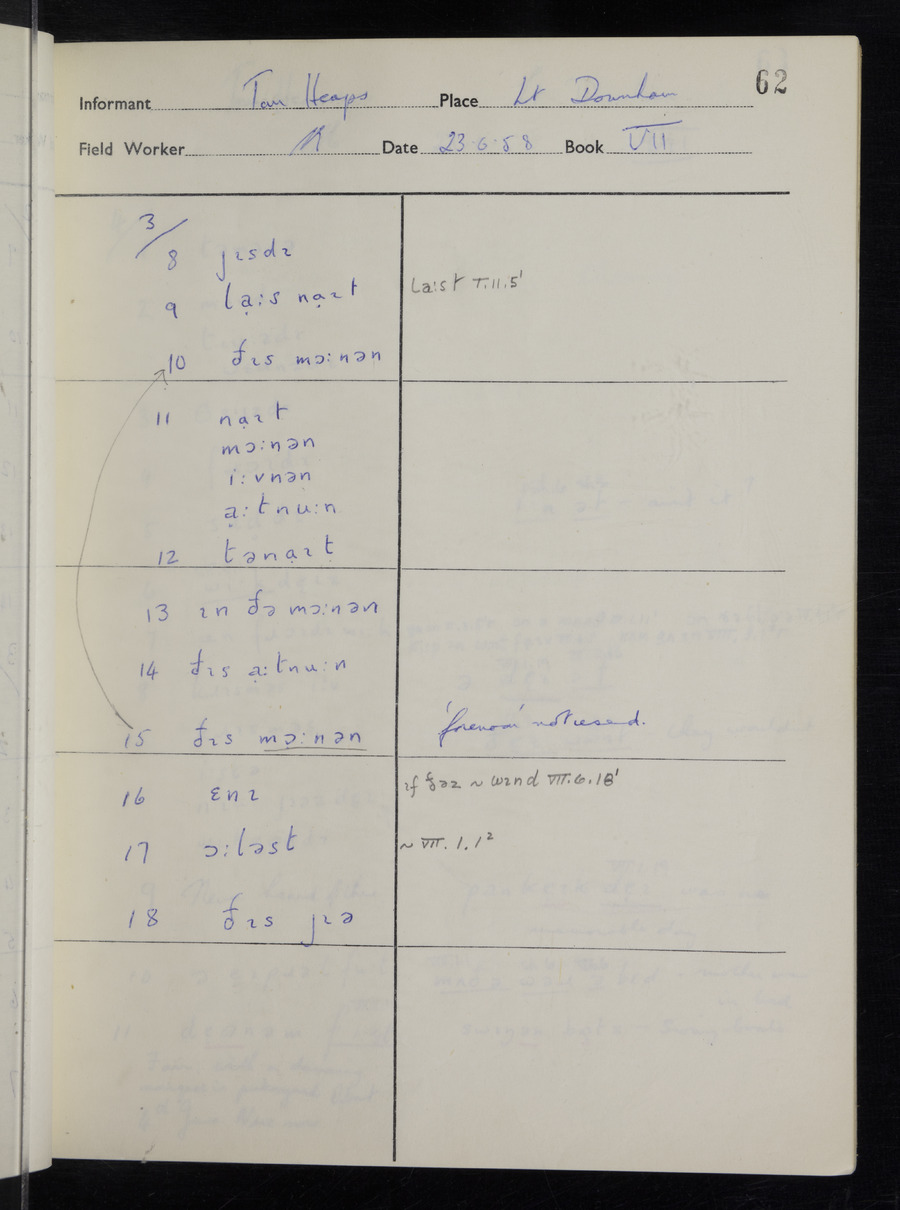 62
Informant Tom Heaps Place Lt Downham
Field Worker Date 23·6·58 Book VII
3/
8 jɪsdɪ
9 lạ:s nạɪt la:st T.II.5'
10 ðɪs mɔ:nən
11 nạɪt
mɔ:nən
i:vnən
ạ:tnu:n
12 tənạɪt
13 ɪn ðə mɔ:nən
14 ðɪs ạ:tnu:n
15 ðɪs mɔ:nən 'forenoon' not used.
16 ɛnɪ ɪf ðəz ~ wɪnd VII.6.18'
17 ɔ:ləst ~ VII.1.1²
18 ðɪs jɪə